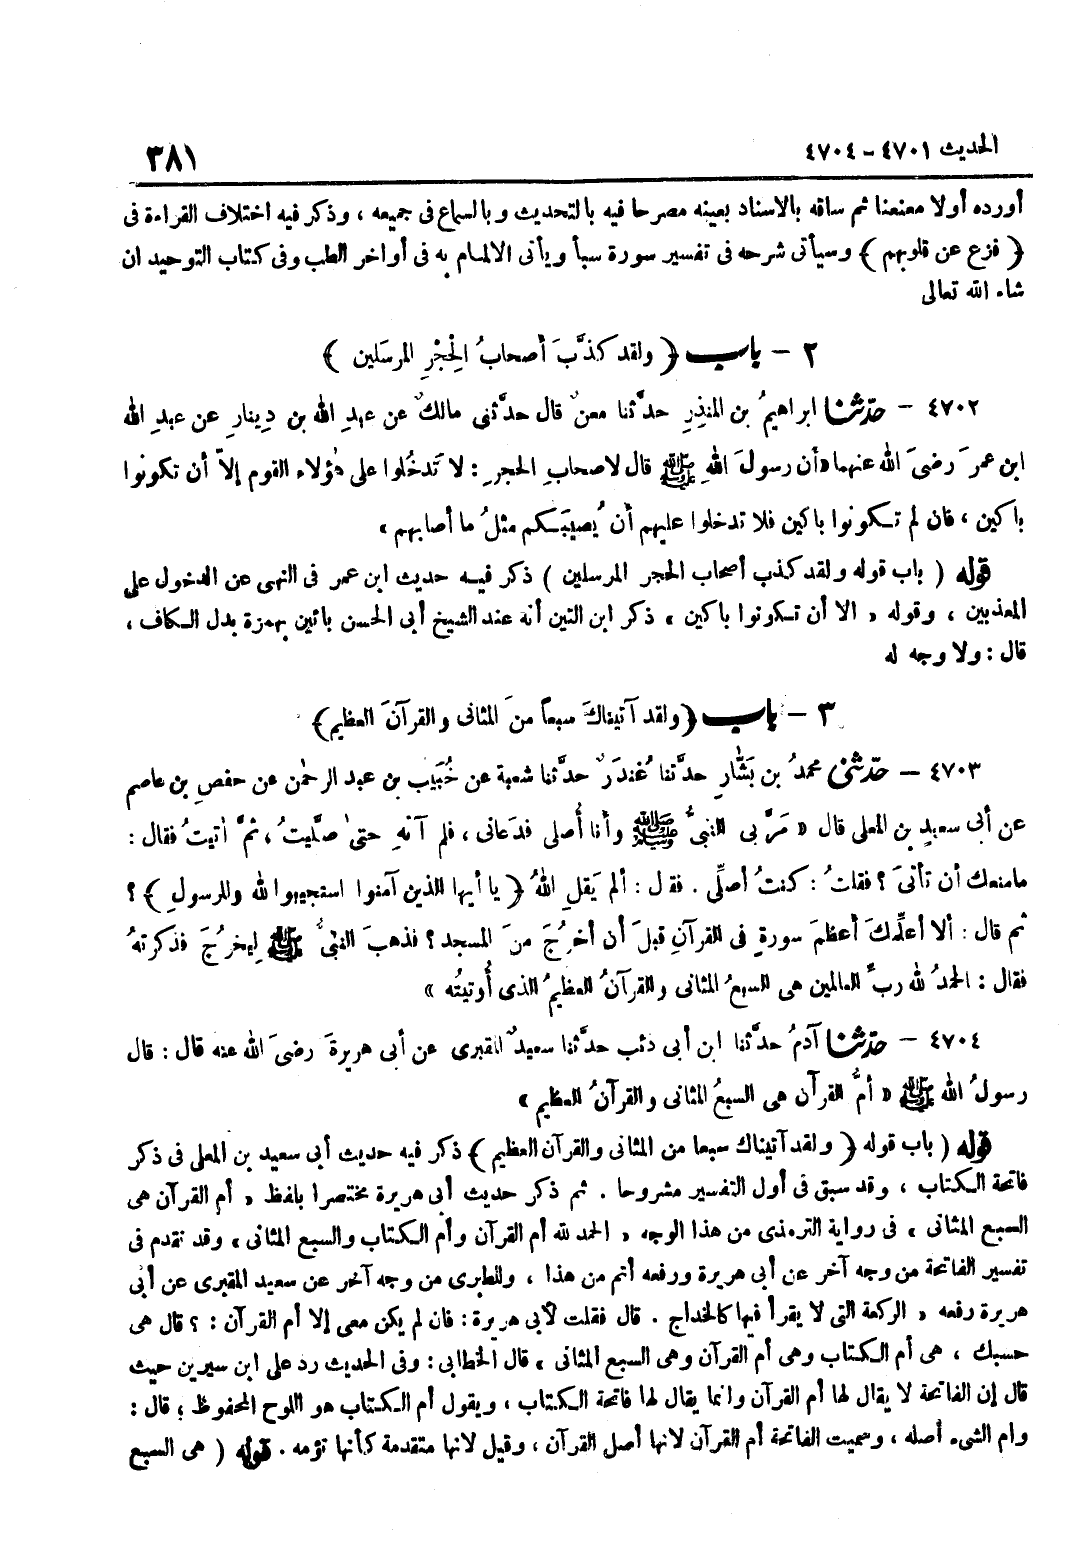 الحديث ٤٧٠١ - ٤٧٠٤
٣٨١
أورده أولا معنعنا ثم ساقه بالاسناد بعينه مصرحا فيه بالتحديث وبالسماع فى جميعه ، وذكر فيه اختلاف القراءة فى
﴿ فزع عن قلوبهم ﴾ وسيأتى شرحه فى تفسير سورة سبأ ويأتى الالمام به فى أواخر الطب وفى كتاب التوحيد ان
شاء الله تعالى
٢ - باب ﴿ ولقد كذَّبَ أصحابُ الحِجْرِ المرسَلين ﴾
٤٧٠٢ - حدّثنا ابراهيمُ بن المنذِرِ حدَّثنا معنٌ قال حدَّثنى مالكٌ عن عبدِ الله بن دِينارِ عن عبدِ الله
ابن عمرَ رضىَ الله عنهما «أن رسولَ اللهِ ﷺ قال لاصحابِ الحجرِ : لا تَدخُلوا على هٰؤلاء القوم إلاّ أن تكونوا
باكين ، فان لم تكونوا باكين فلا تدخلوا عليهم أن يُصيبَكم مثلُ ما أصابهم »
قوله ( باب قوله ولقد كذب أصحاب الحجر المرسلين ) ذكر فيه حديث ابن عمر فى النهى عن الدخول على
المعذبين ، وقوله « الا أن تكونوا باكين » ذكر ابن التين أنه عند الشيخ أبى الحسن بائين بهمزة بدل الكاف ،
قال : ولا وجه له
٣ - باب ﴿ولقد آتيناكَ سبعاً منَ المثانى والقرآنَ العظيم﴾
٤٧٠٣ - حدّثنى محمدُ بن بَشّارِ حدَّثنا غُندَرٌ حدَّثنا شعبة عن خُبَيب بن عبد الرحمٰن عن حفصِ بن عاصم
عن أبى سعيدِ بن المعلى قال « مَرَّ بى النبىُّ ﷺ وأنا أُصلى فدَعانى ، فلم آتهِ حتىٰ صلَّيتُ ، ثمَّ أتيتُ فقال :
مامنعك أن تأتىَ ؟ فقلتُ : كنتُ أصلِّى . فقال : ألم يَقلِ اللهُ ﴿ يا أيها الذين آمنوا استجيبوا لله وللرسولِ ﴾ ؟
ثم قال : ألا أعلِّمكَ أعظمَ سورةٍ فى القرآنِ قبلَ أن أخرُجَ منَ المسجد ؟ فذهبَ النبىُّ ﷺ لِيخرُجَ فذكرتهُ
فقال : الحمدُ لله ربِّ العالمين هى السبعُ المثانى والقرآنُ العظيمُ الذى أُوتيتُه »
٤٧٠٤ - حدّثنا آدمُ حدَّثنا ابن أبى ذئب حدَّثنا سعيدٌ المقبرى عن أبى هريرةَ رضىَ الله عنه قال : قال
رسولُ الله ﷺ « أمُّ القرآن هى السبعُ المثانى والقرآنُ العظيم »
قوله ( باب قوله ﴿ ولقد آتيناك سبعا من المثانى والقرآن العظيم ﴾ ) ذكر فيه حديث أبى سعيد بن المعلى فى ذكر
فاتحة الكتاب ، وقد سبق فى أول التفسير مشروحا . ثم ذكر حديث أبى هريرة مختصرا بلفظ « أم القرآن هى
السبع المثانى » فى رواية الترمذى من هذا الوجه « الحمد لله أم القرآن وأم الكتاب والسبع المثانى » وقد تقدم فى
تفسير الفاتحة من وجه آخر عن أبى هريرة ورفعه أتم من هذا ، وللطبرى من وجه آخر عن سعيد المقبرى عن أبى
هريرة رفعه « الركعة التى لا يقرأ فيها كالخداج . قال فقلت لأبى هريرة : فان لم يكن معى إلا أم القرآن : ؟ قال هى
حسبك ، هى أم الكتاب وهى أم القرآن وهى السبع المثانى » قال الخطابى : وفى الحديث رد على ابن سيرين حيث
قال إن الفاتحة لا يقال لها أم القرآن وانما يقال لها فاتحة الكتاب ، ويقول أم الكتاب هو اللوح المحفوظ ؛ قال :
وام الشىء أصله ، وسميت الفاتحة أم القرآن لانها أصل القرآن ، وقيل لانها متقدمة كأنها تؤمه . قوله ( هى السبع